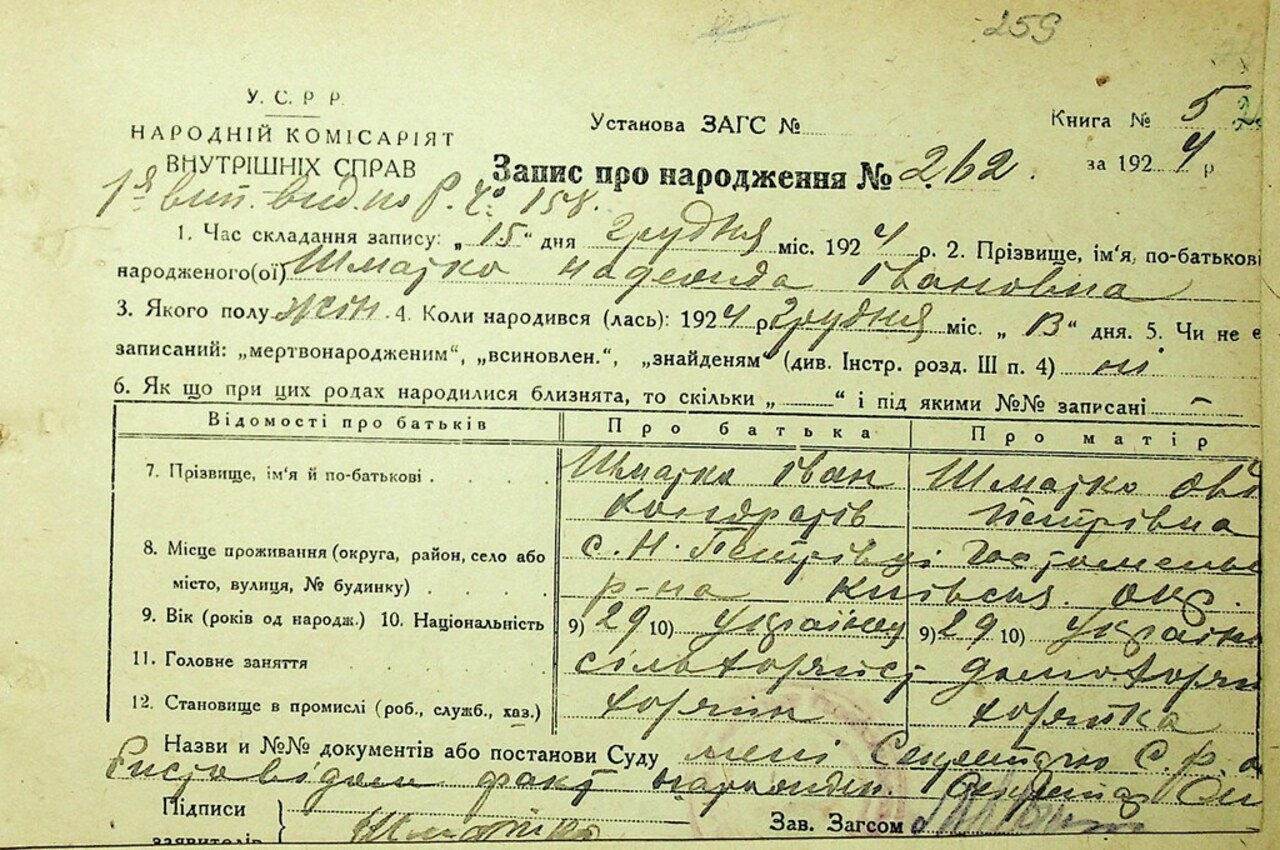 259
У.С.Р.Р.
НАРОДНІЙ КОМІСАРІЯТ
ВНУТРІШНІХ СПРАВ
Установа ЗАГС №
Книга № 5
Запис про народження № 262.
за 1924 р
1. Час складання запису: „15“ дня Грудня міс. 1924 р. 2. Прізвище, ім'я, по-батькові
народженого(ої) Шматко Надежда Івановна
3. Якого полу жін. 4. Коли народився (лась): 1924 р Грудня міс. „13“ дня. 5. Чи не є
записаний: „мертвонародженим“, „всиновлен.“, „знайденям“ (див. Інстр. розд. III п. 4) ні
6. Як що при цих родах народилися близнята, то скільки „ “ і під якими №№ записані –
Відомості про батьків Про батька Про матір
7. Прізвище, ім'я й по-батькові Шматко Іван Шматко
Кондратів Петрівна
8. Місце проживання (округа, район, село або с. Н. Петрівці
місто, вулиця, № будинку) р-на Київськ. окр.
9. Вік (років од народж.) 10. Національність 9) 29 10) 9) 29 10)
11. Головне заняття
12. Становище в промислі (роб., служб., хаз.) хозяїн хозяйка
Назви и №№ документів або постанови Суду мені Секретарю С.
факт
Підписи
заявителів
Зав. Загсом